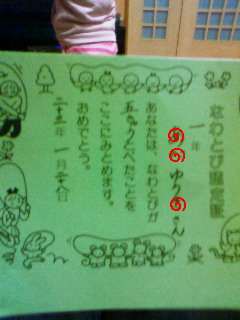 なわとび認定証
一年
ゆり さん
あなたは、なわとびが
五きゅうとべたことを
ここにみとめます。
おめでとう。
二十三年 一月二十八日